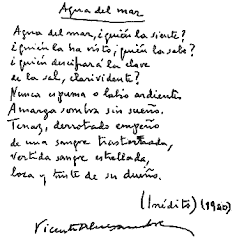 Agua del mar
Agua del mar, ¿quién la siente?
¿quién la ha visto, quién la sabe?
¿quién descifrará la clave
de la sal, clarividente?
Nunca espuma o labio ardiente.
Amarga sombra sin sueño.
Tenaz, derrotado empeño
de una sangre trastornada,
vertida sangre estrellada,
loca y triste de su dueño.
(Inédito) (1920)
Vicente Aleixandre